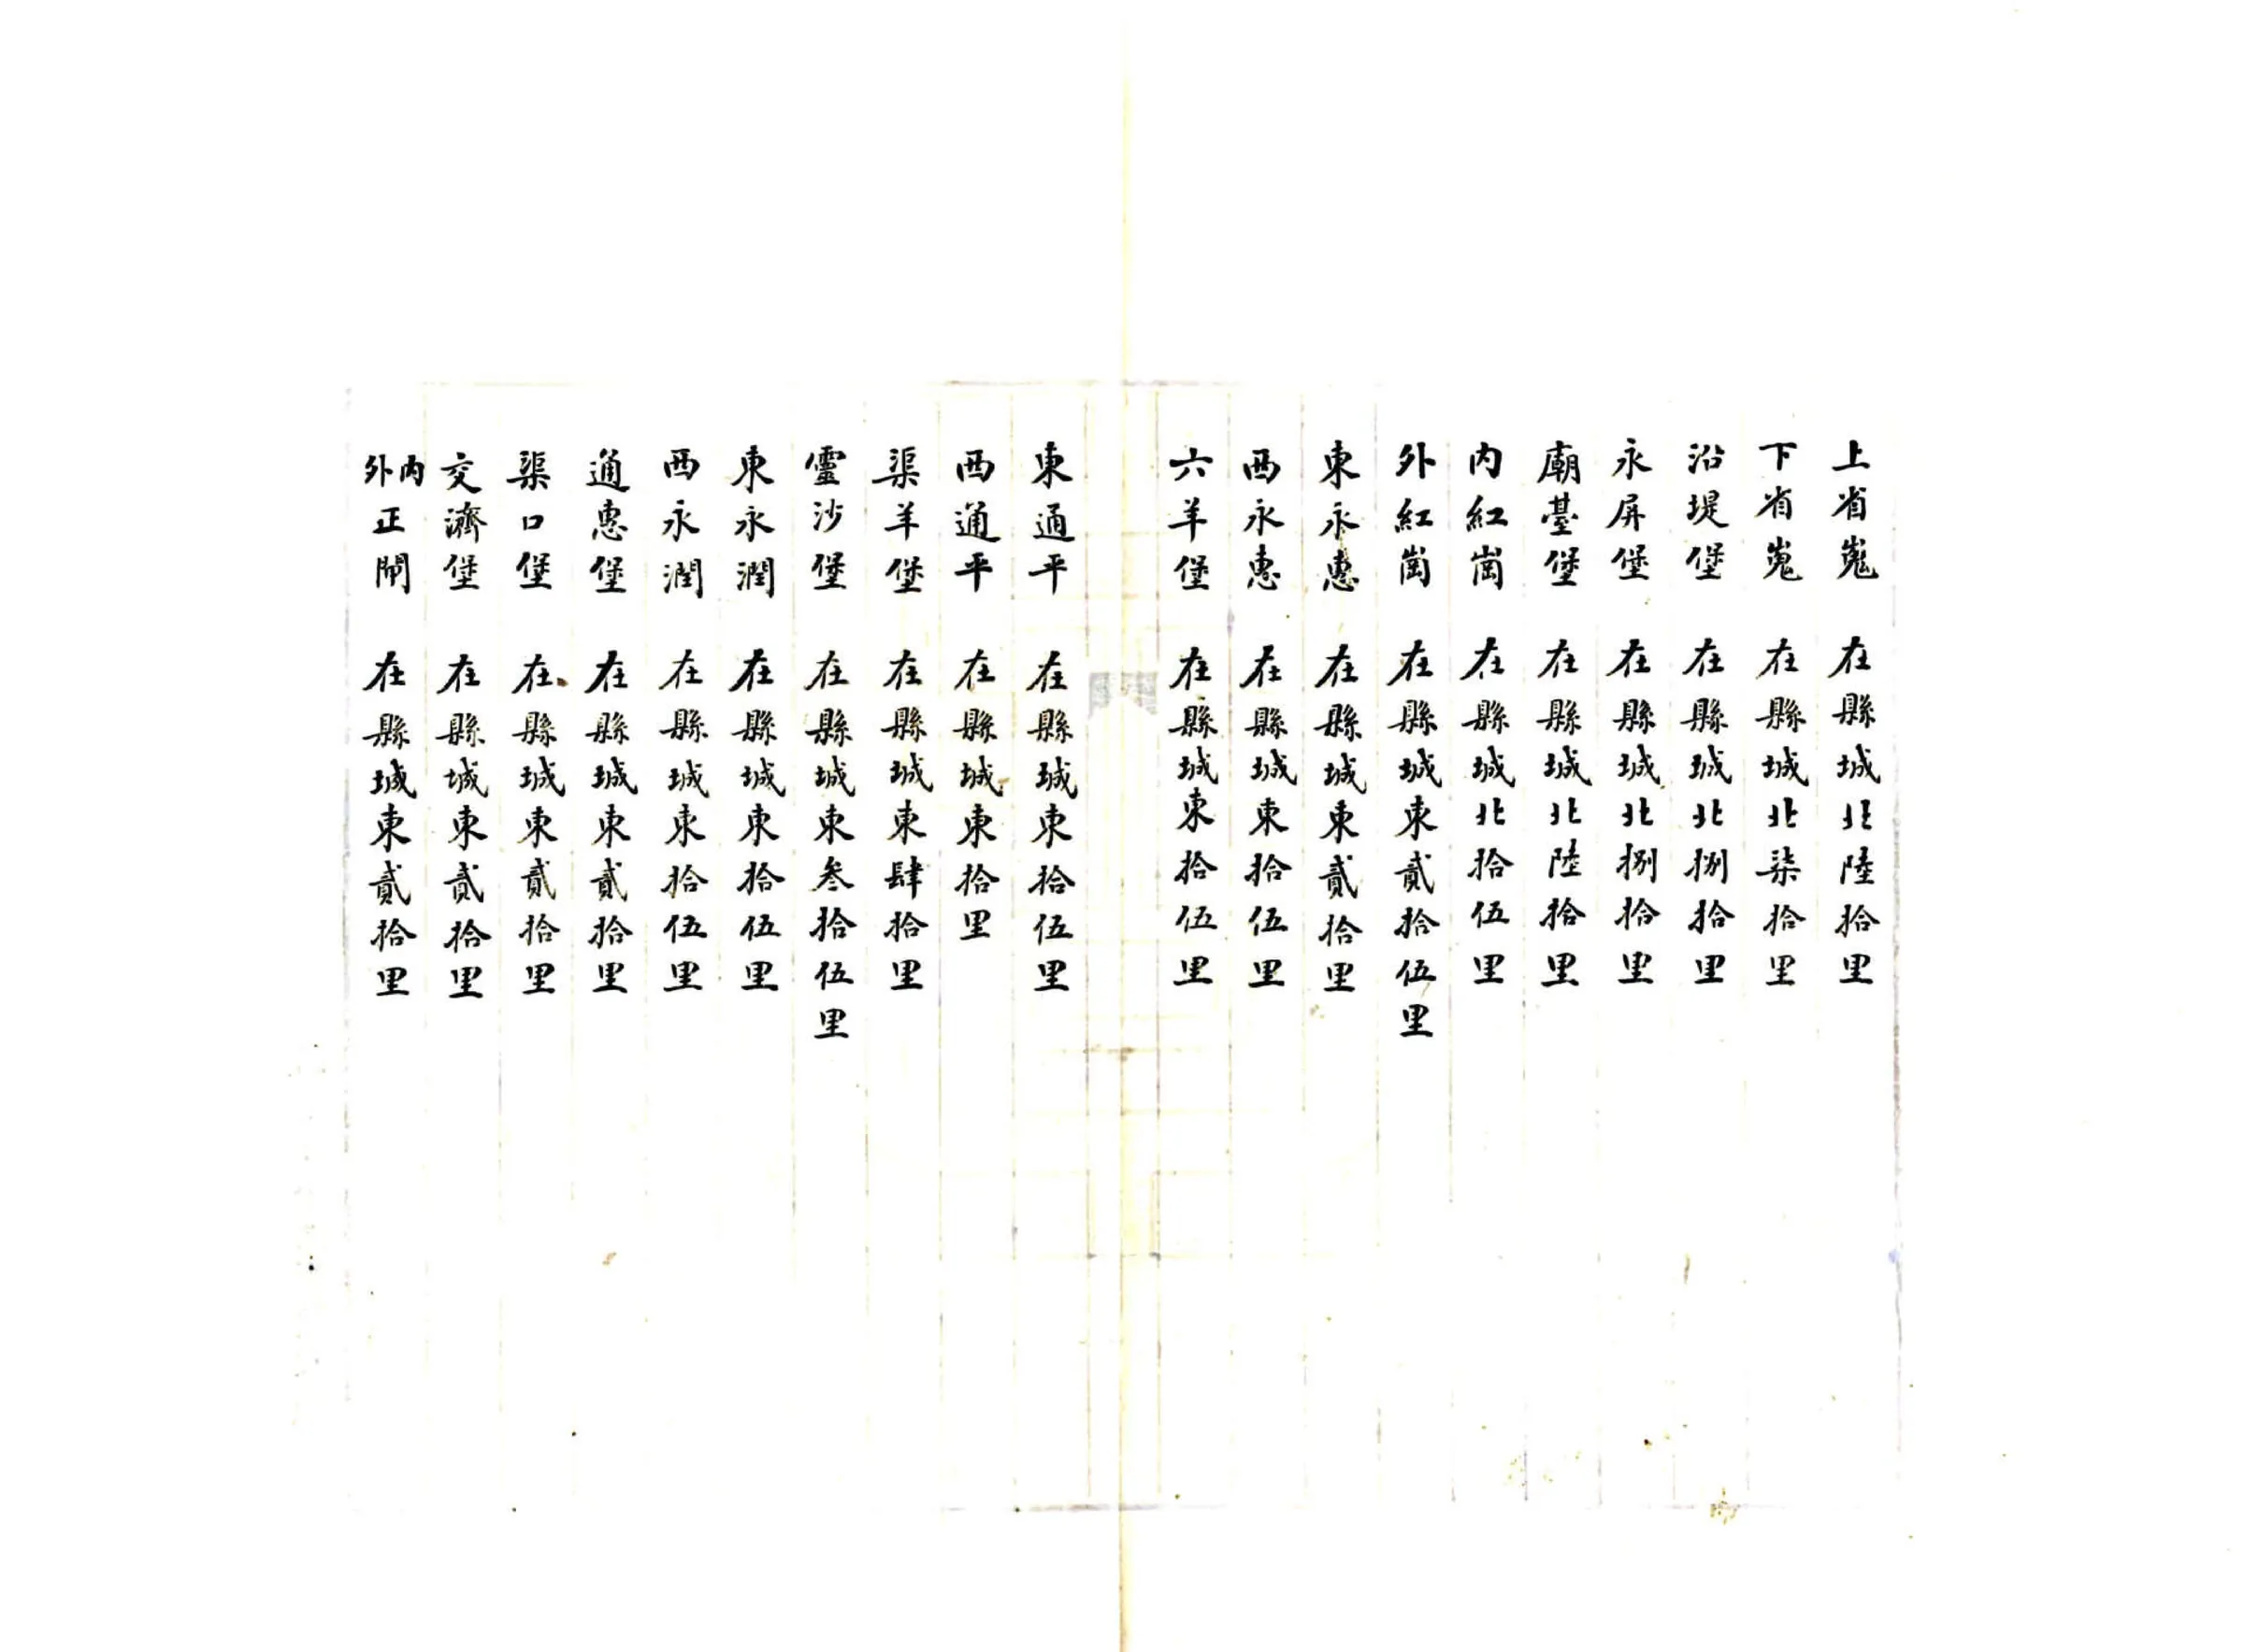 上省嵬 在縣城北陸拾里
下省嵬 在縣城北柒拾里
沿堤堡 在縣城北捌拾里
永屏堡 在縣城北捌拾里
廟臺堡 在縣城北陸拾里
内紅崗 在縣城北拾伍里
外紅崗 在縣城東貳拾伍里
東永惠 在縣城東貳拾里
西永惠 在縣城東拾伍里
六羊堡 在縣城東拾伍里
東通平 在縣城東拾伍里
西通平 在縣城東拾里
渠羊堡 在縣城東肆拾里
靈沙堡 在縣城東叁拾伍里
東永潤 在縣城東拾伍里
西永潤 在縣城東拾伍里
通惠堡 在縣城東貳拾里
渠口堡 在縣城東貳拾里
交濟堡 在縣城東貳拾里
内外正閘 在縣城東貳拾里